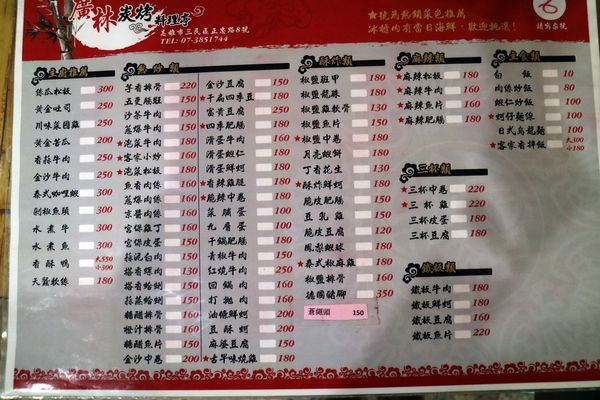 廣林炭烤料理亭
高雄市三民區正忠路8號
TEL: 07-3851744
★號為熱銷菜色推薦
冰櫃內有當日海鮮，歡迎挑選！
請寫桌號
主廚推薦
絲瓜松板 300
黃金吐司 250
川味菜園雞 250
黃金苦瓜 200
香蒜牛肉 200
金沙牛肉 200
泰式咖哩蝦 300
剁椒魚頭 300
水煮牛 300
水煮魚 300
香酥鴨 大550 小300
天籃軟絲 180
熱炒類
芋香排骨 220
五更腸旺 150
沙茶牛肉 150
蔥爆牛肉 150
★泡菜牛肉 180
★客家小炒 160
★泡菜松板 180
魚香肉絲 160
蔥爆肉絲 160
京醬肉絲 160
宮保雞丁 160
宮保皮蛋 150
蒜泥白肉 150
塔香螺肉 130
塔香蛤蜊 150
蒜蒸蛤蜊 150
糖醋排骨 160
橙汁排骨 160
糖醋魚片 150
金沙中卷 200
金沙豆腐 150
★干扁四季豆 180
富貴豆腐 250
★四季肥腸 180
滑蛋牛肉 160
滑蛋蝦仁 160
滑蛋鮮蚵 180
★塔香雞腿 180
★脆辣中卷 180
菜脯蛋 100
九層蛋 100
干鍋肥腸 180
青椒牛肉 150
紅燒牛肉 250
回鍋肉 160
打拋肉 160
油條鮮蚵 200
豆酥蚵 200
麻婆豆腐 150
★古早味燒雞 180
酥炸類
椒鹽斑甲 180
椒鹽龍珠 180
椒鹽雞軟骨 130
椒鹽魚片 150
★椒鹽中卷 180
月亮蝦餅 180
丁香花生 130
★酥炸鮮蚵 180
脆皮肥腸 150
豆乳雞 150
脆皮豆腐 120
鳳梨蝦球 180
★泰式椒麻雞 180
椒鹽排骨 160
德國豬腳 350
蒼蠅頭 150
麻辣類
★麻辣松板 180
★麻辣牛肉 160
★麻辣魚片 160
★麻辣肥腸 180
三杯類
★三杯中卷 220
★三杯雞 220
三杯皮蛋 180
三杯豆腐 180
鐵板類
鐵板牛肉 180
鐵板鮮蚵 180
鐵板豆腐 160
鐵板魚片 220
主食類
白飯 10
肉絲炒飯 80
蝦仁炒飯 100
★蚵仔麵線 100
日式烏龍麵 100
★客家香拌飯 大300 小180